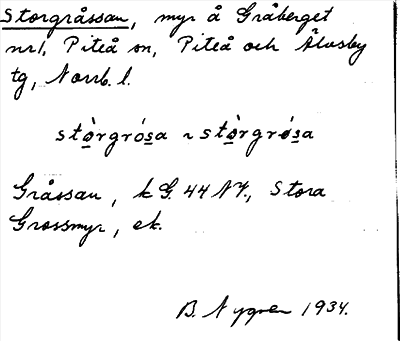 Storgråssan, myr å Gråberget
nr1, Piteå sn, Piteå och Älvsby
tg, Norrb. l.
stòrgrósa ~ stòrgrǿsa
Gråssan, k G. 44 NV., Stora
Grossmyr, ek.
B. Nygren 1934.